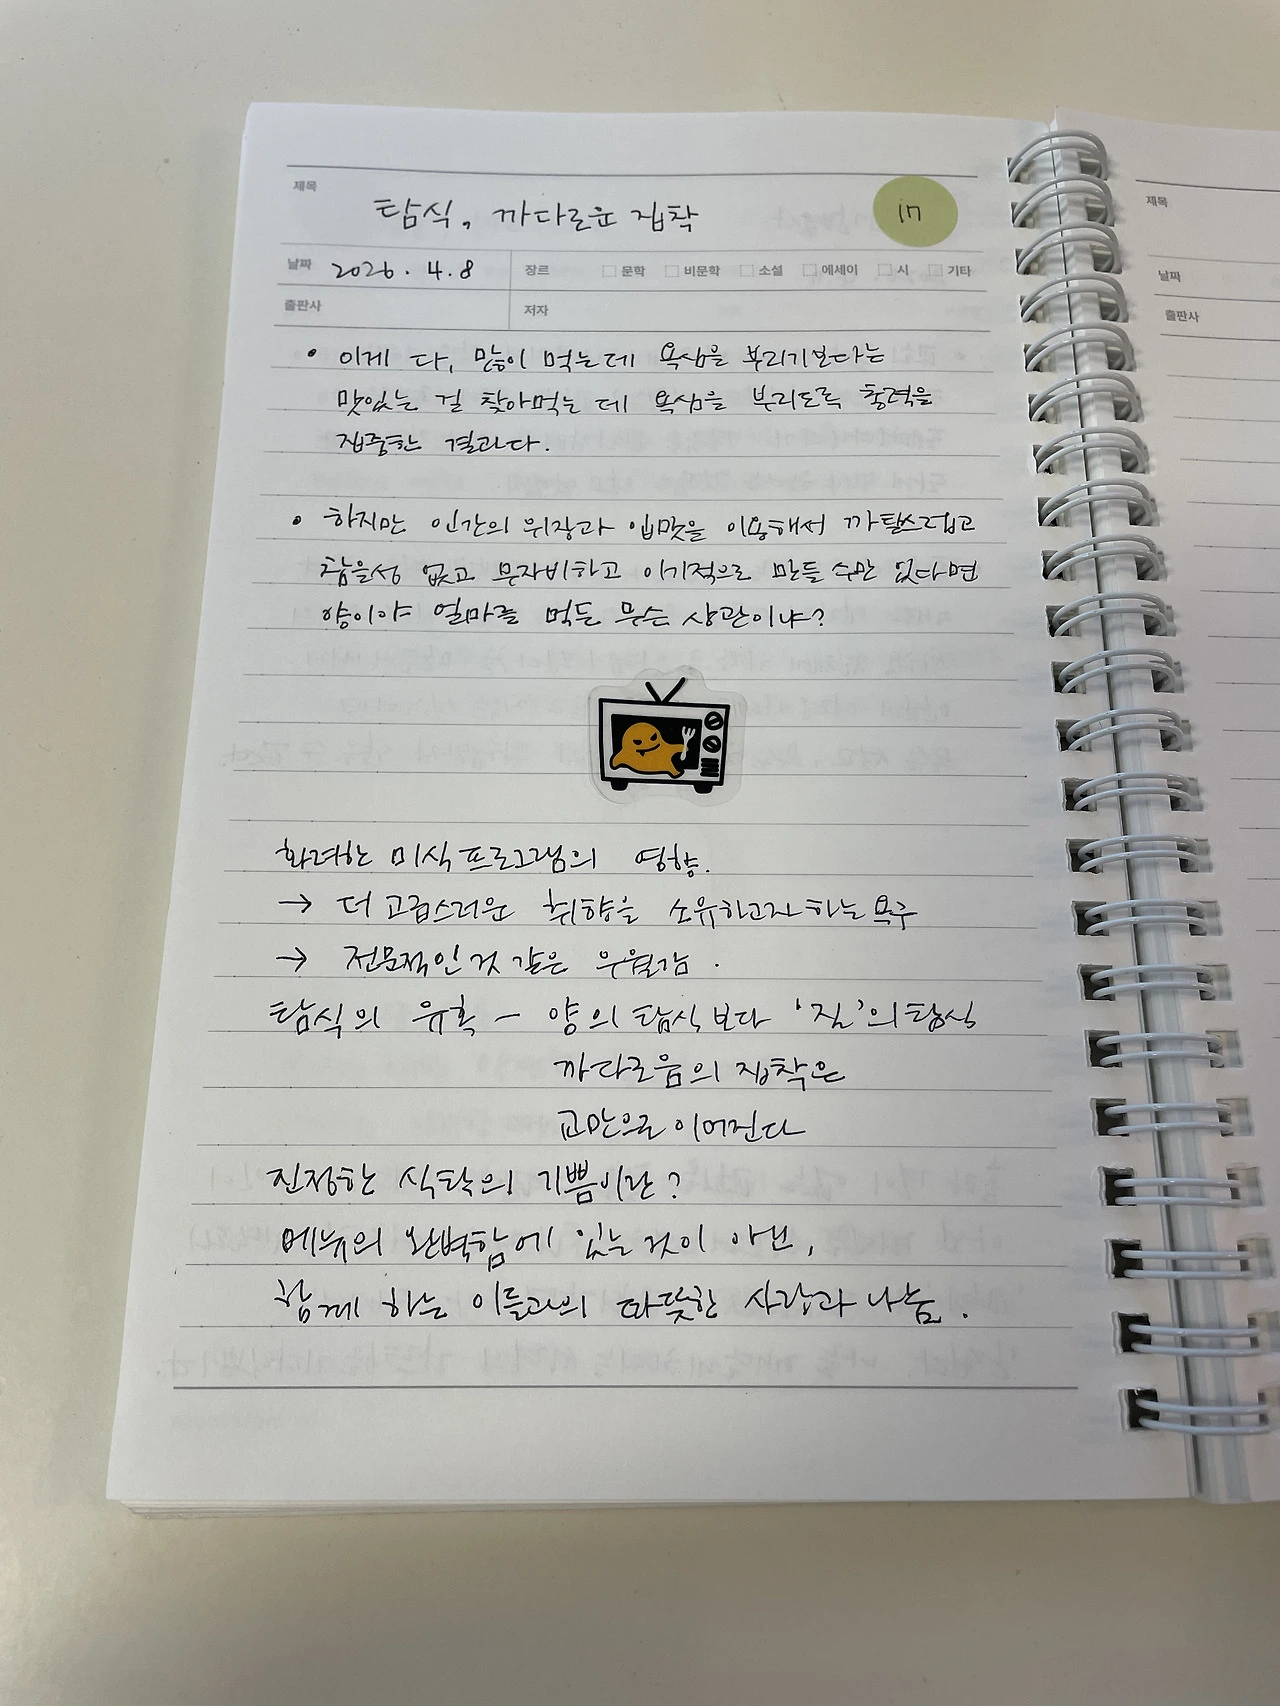 제목
탐식, 까다로운 집착
17
날짜 2026. 4. 8 장르 문학 비문학 소설 에세이 시 기타
출판사 저자
• 이게 다, 많이 먹는데 욕심을 부리기보다는
맛있는 걸 찾아먹는 데 욕심을 부리도록 총력을
집중한 결과다.
• 하지만 인간의 위장과 입맛을 이용해서 까탈스럽고
참을성 없고 무자비하고 이기적으로 만들 수만 있다면
양이야 얼마를 먹든 무슨 상관이냐?
화려한 미식 프로그램의 영향.
→ 더 고급스러운 취향을 소유하고자 하는 욕구
→ 전문적인 것 같은 우월감.
탐식의 유혹 - 양의 탐식보다 '질'의 탐식
까다로움의 집착은
교만으로 이어진다
진정한 식탁의 기쁨이란?
메뉴의 완벽함에 있는 것이 아닌,
함께 하는 이들과의 따뜻한 사랑과 나눔.
제목
날짜
출판사